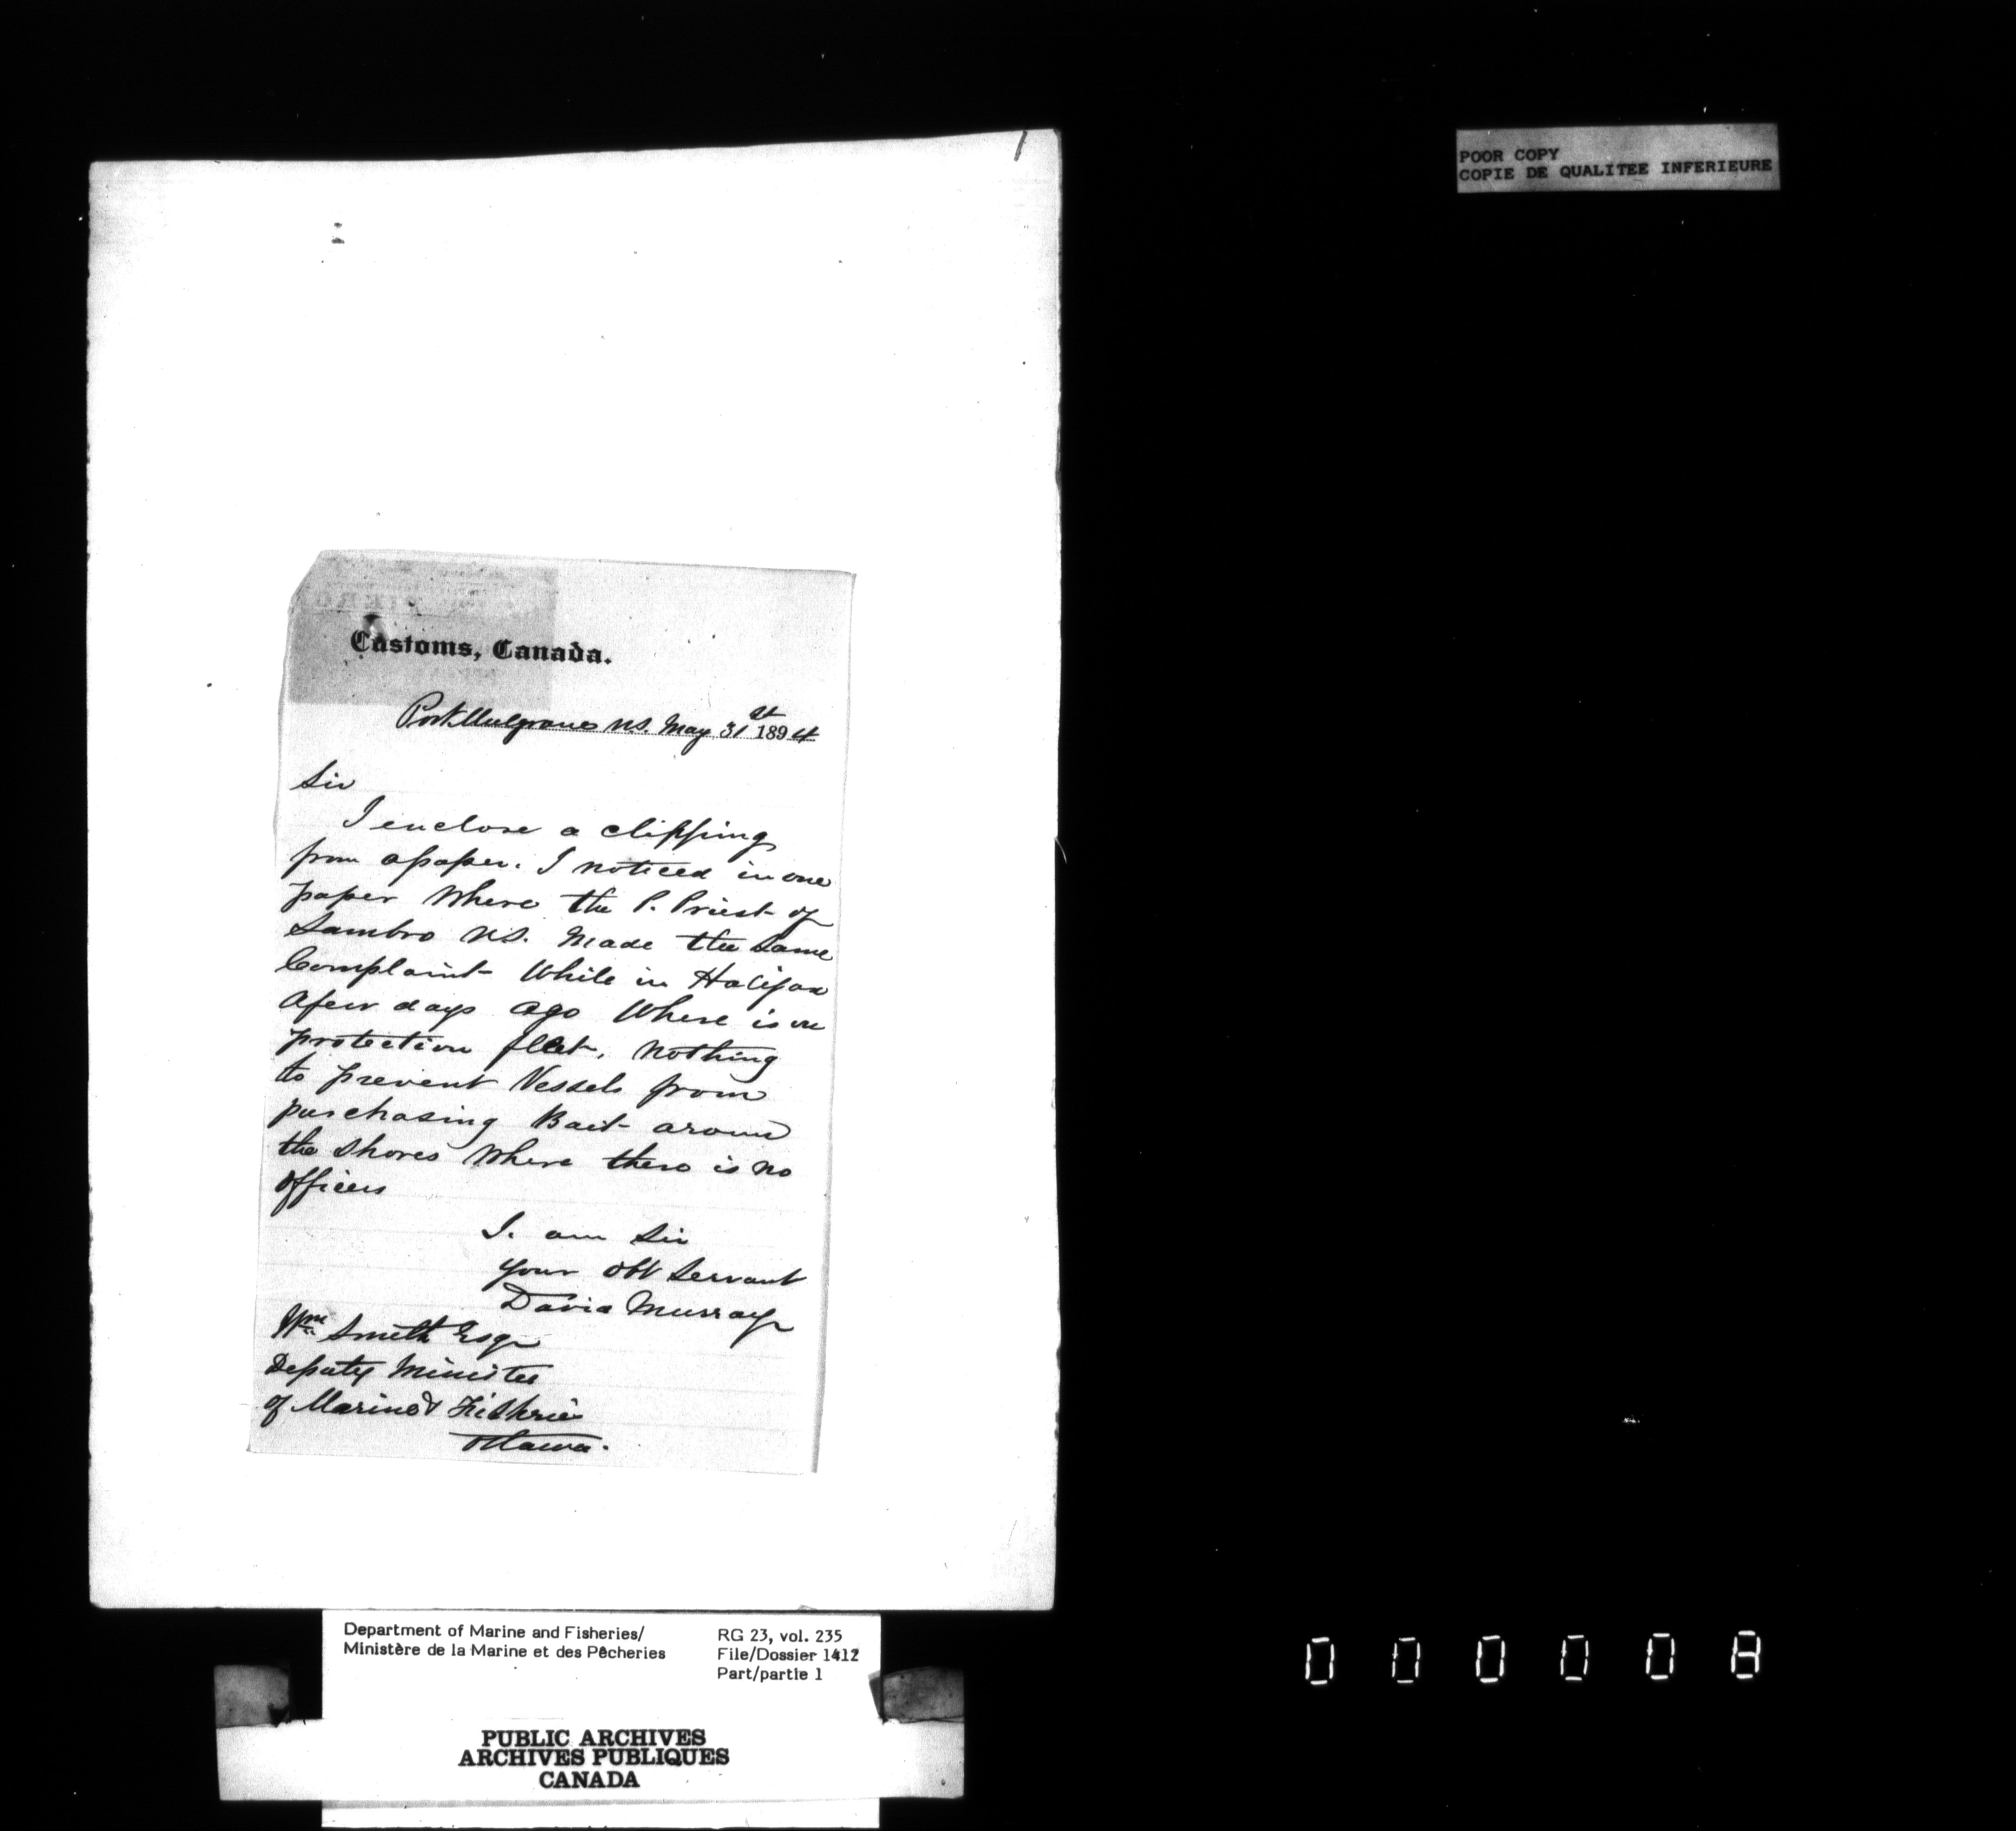 POOR COPY
COPIE DE QUALITEE INFERIEURE
Customs, Canada.
Port Mulgrave N.S. May 31st 1894
Sir
I enclose a clipping
from a paper. I noticed in one
paper Where the P. Priest of
Sambro N.S. Made the Same
Complaint While in Halifax
a few days ago Where is our
protection fleet, nothing
to prevent Vessels from
purchasing Bait around
the Shores Where there is no
Officers
I. am Sir
your Obt Servant
David Murray
Wm Smith Esqr
Deputy Minister
of Marine & Fisherie
Ottawa.
Department of Marine and Fisheries/
Ministère de la Marine et des Pêcheries
RG 23, vol. 235
File/Dossier 1412
Part/partie 1
PUBLIC ARCHIVES
ARCHIVES PUBLIQUES
CANADA
000008